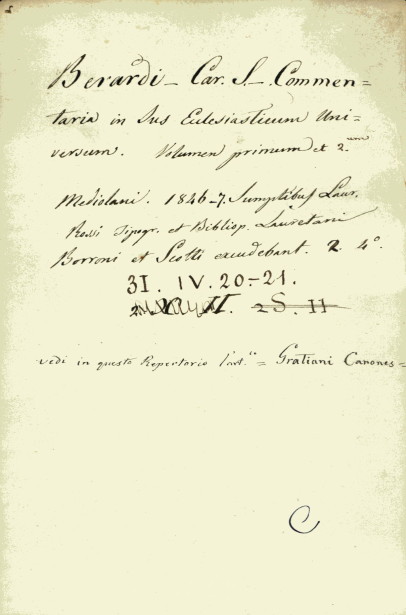 Berardi - Car. S. - Commen=
taria in Jus Eclesiasticum Uni=
versum. Volumen primum et 2.um
Mediolani. 1846-7. Sumptibus Laur.
Rossi Tipogr. et Bibliop. Lauretani
Borroni et Scotti excudebant. 2. 4°.
31. IV. 20-21.
2S. II
vedi in questo Repertorio l'art.lo = Gratiani Canones=
C